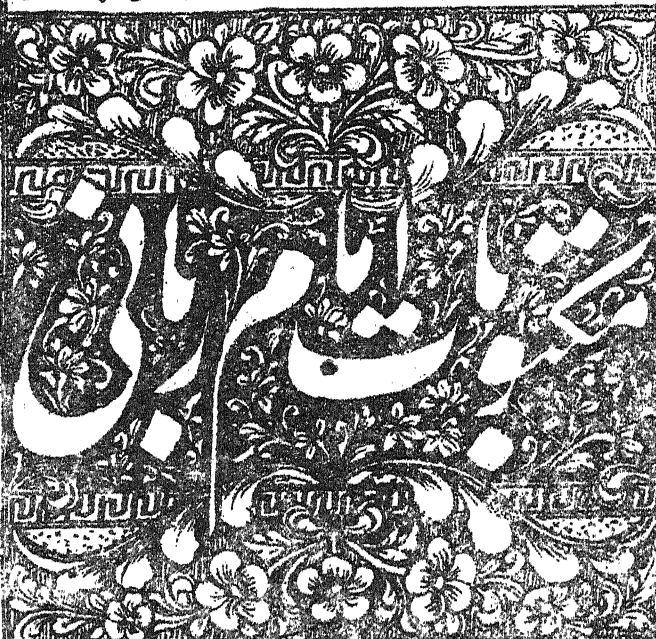 مکتوبات امام ربانی